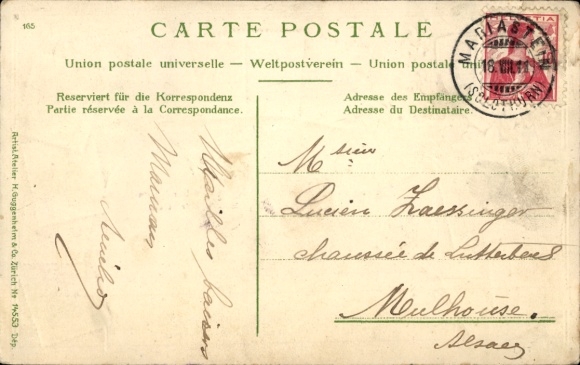 165
CARTE POSTALE
Union postale universelle — Weltpostverein — Union postale uni
Reserviert für die Korrespondenz
Partie réservée à la Correspondance.
Adresse des Empfängers
Adresse du Destinataire.
HELVETIA
MARIASTEIN
(SOLOTHURN)
Msieur
Lucien Zaessinger
chaussée de Lutterbach
Mulhouse.
Alsace
baisers
Maman
Artist. Atelier H. Guggenheim & Co. Zürich No 14553 Dép.